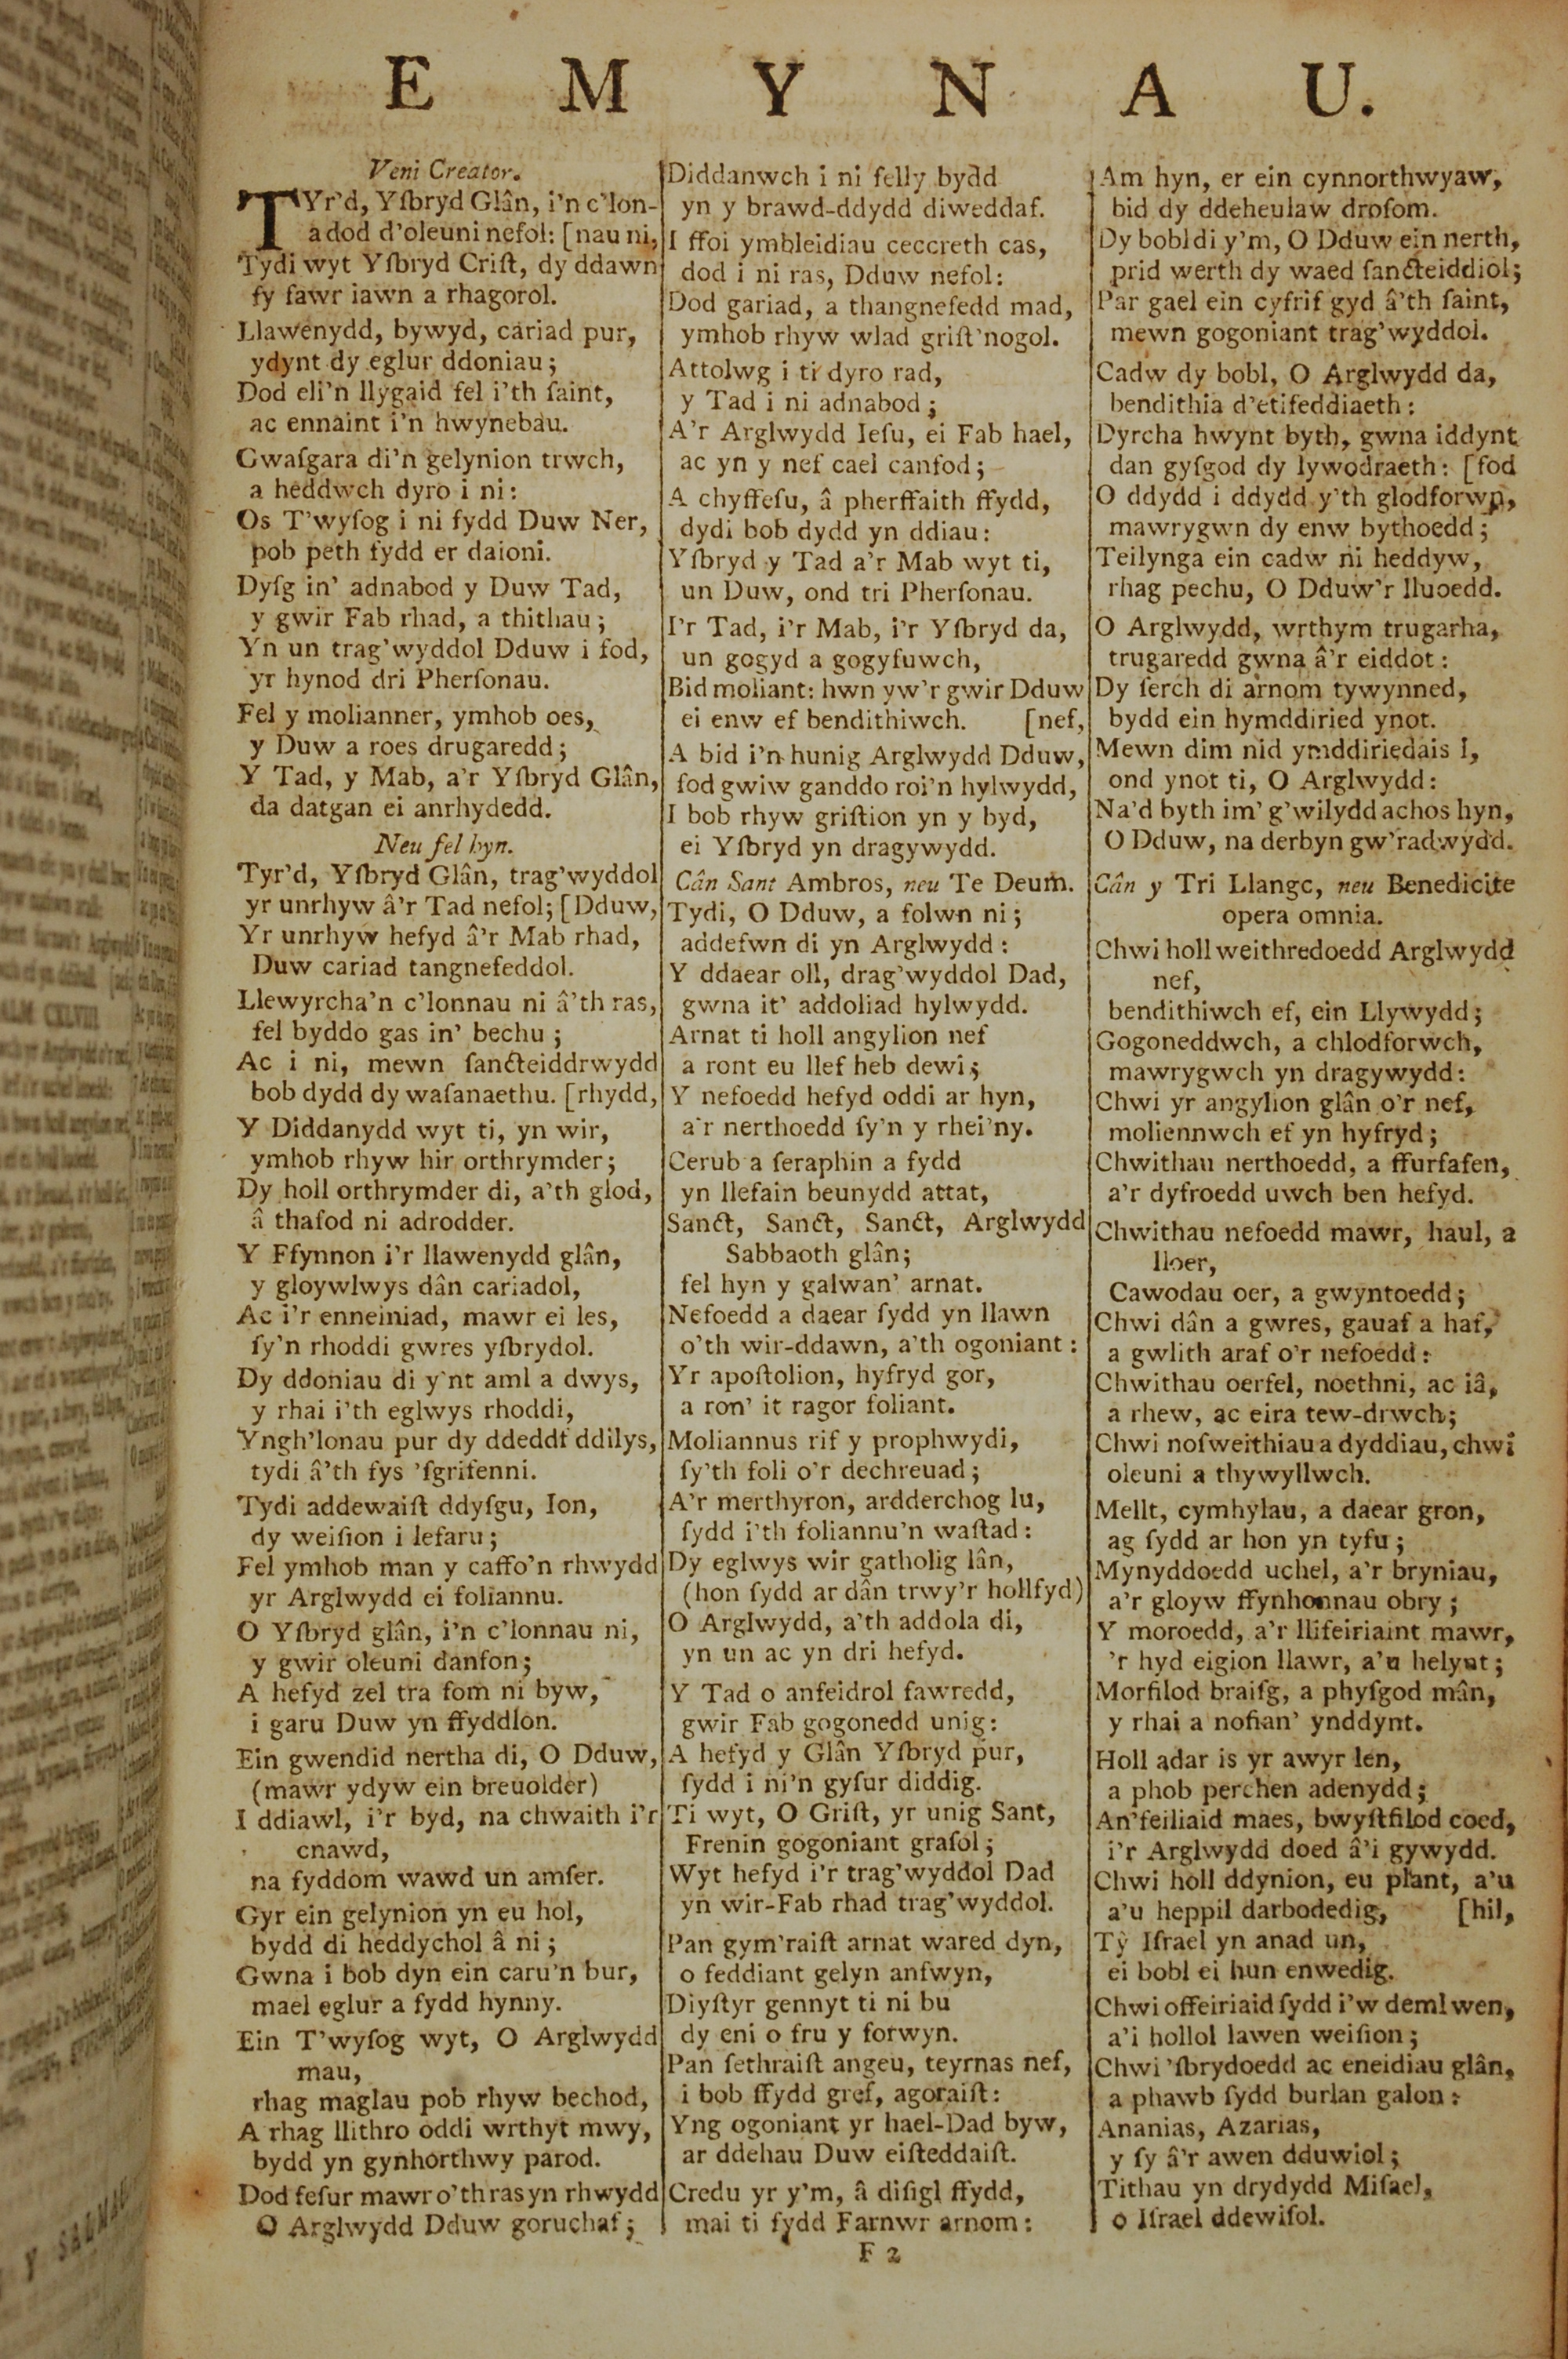 E M Y N A U.
Veni Creator.
TYr'd, Yſbryd Glân, i'n c'lon-
a dod d'oleuni nefol: [nau ni,
Tydi wyt Yſbryd Criſt, dy ddawn
ſy fawr iawn a rhagorol.
Llawenydd, bywyd, cariad pur,
ydynt dy eglur ddoniau;
Dod eli'n llygaid fel i'th ſaint,
ac ennaint i'n hwynebau.
Gwaſgara di'n gelynion trwch,
a heddwch dyro i ni:
Os T'wyſog i ni fydd Duw Ner,
pob peth fydd er daioni.
Dyſg in' adnabod y Duw Tad,
y gwir Fab rhad, a thithau;
Yn un trag'wyddol Dduw i fod,
yr hynod dri Pherſonau.
Fel y molianner, ymhob oes,
y Duw a roes drugaredd;
Y Tad, y Mab, a'r Yſbryd Glân,
da datgan ei anrhydedd.
Neu fel hyn.
Tyr'd, Yſbryd Glân, trag'wyddol
yr unrhyw â'r Tad nefol; [Dduw,
Yr unrhyw hefyd â'r Mab rhad,
Duw cariad tangnefeddol.
Llewyrcha'n c'lonnau ni â'th ras,
fel byddo gas in' bechu;
Ac i ni, mewn ſancteiddrwydd
bob dydd dy waſanaethu. [rhydd,
Y Diddanydd wyt ti, yn wir,
ymhob rhyw hir orthrymder;
Dy holl orthrymder di, a'th glod,
â thafod ni adrodder.
Y Ffynnon i'r llawenydd glân,
y gloywlwys dân cariadol,
Ac i'r enneiniad, mawr ei les,
ſy'n rhoddi gwres yſbrydol.
Dy ddoniau di y'nt aml a dwys,
y rhai i'th eglwys rhoddi,
Yngh'lonau pur dy ddeddf ddilys,
tydi â'th fys 'ſgrifenni.
Tydi addewaiſt ddyſgu, Ion,
dy weiſion i lefaru;
Fel ymhob man y caffo'n rhwydd
yr Arglwydd ei foliannu.
O Yſbryd glân, i'n c'lonnau ni,
y gwir oleuni danfon;
A hefyd zel tra fom ni byw,
i garu Duw yn ffyddlon.
Ein gwendid nertha di, O Dduw,
(mawr ydyw ein breuolder)
I ddiawl, i'r byd, na chwaith i'r
cnawd,
na fyddom wawd un amſer.
Gyr ein gelynion yn eu hol,
bydd di heddychol â ni;
Gwna i bob dyn ein caru'n bur,
mael eglur a fydd hynny.
Ein T'wyſog wyt, O Arglwydd
mau,
rhag maglau pob rhyw bechod,
A rhag llithro oddi wrthyt mwy,
bydd yn gynhorthwy parod.
Dod feſur mawr o'th ras yn rhwydd
O Arglwydd Dduw goruchaf;
Diddanwch i ni felly bydd
yn y brawd-ddydd diweddaf.
I ffoi ymbleidiau ceccreth cas,
dod i ni ras, Dduw nefol:
Dod gariad, a thangnefedd mad,
ymhob rhyw wlad griſt'nogol.
Attolwg i ti dyro rad,
y Tad i ni adnabod;
A'r Arglwydd Ieſu, ei Fab hael,
ac yn y nef cael canfod;
A chyffeſu, â pherffaith ffydd,
dydi bob dydd yn ddiau:
Yſbryd y Tad a'r Mab wyt ti,
un Duw, ond tri Pherſonau.
I'r Tad, i'r Mab, i'r Yſbryd da,
un gogyd a gogyfuwch,
Bid moliant: hwn yw'r gwir Dduw
ei enw ef bendithiwch. [nef,
A bid i'n hunig Arglwydd Dduw,
fod gwiw ganddo roi'n hylwydd,
I bob rhyw griſtion yn y byd,
ei Yſbryd yn dragywydd.
Cân Sant Ambros, neu Te Deum.
Tydi, O Dduw, a folwn ni;
addefwn di yn Arglwydd:
Y ddaear oll, drag'wyddol Dad,
gwna it' addoliad hylwydd.
Arnat ti holl angylion nef
a ront eu llef heb dewi;
Y nefoedd hefyd oddi ar hyn,
a'r nerthoedd ſy'n y rhei'ny.
Cerub a ſeraphin a fydd
yn llefain beunydd attat,
Sanct, Sanct, Sanct, Arglwydd
Sabbaoth glân;
fel hyn y galwan' arnat.
Nefoedd a daear ſydd yn llawn
o'th wir-ddawn, a'th ogoniant:
Yr apoſtolion, hyfryd gor,
a ron' it ragor foliant.
Moliannus rif y prophwydi,
ſy'th foli o'r dechreuad;
A'r merthyron, ardderchog lu,
ſydd i'th foliannu'n waſtad:
Dy eglwys wir gatholig lân,
(hon ſydd ar dân trwy'r hollfyd)
O Arglwydd, a'th addola di,
yn un ac yn dri hefyd.
Y Tad o anfeidrol fawredd,
gwir Fab gogonedd unig:
A hefyd y Glân Yſbryd pur,
ſydd i ni'n gyſur diddig.
Ti wyt, O Griſt, yr unig Sant,
Frenin gogoniant graſol;
Wyt hefyd i'r trag'wyddol Dad
yn wir-Fab rhad trag'wyddol.
Pan gym'raiſt arnat wared dyn,
o feddiant gelyn anfwyn,
Diyſtyr gennyt ti ni bu
dy eni o fru y forwyn.
Pan ſethraiſt angeu, teyrnas nef,
i bob ffydd gref, agoraiſt:
Yng ogoniant yr hael-Dad byw,
ar ddehau Duw eiſteddaiſt.
Credu yr y'm, â diſigl ffydd,
mai ti fydd Farnwr arnom:
F 2
Am hyn, er ein cynnorthwyaw,
bid dy ddeheulaw droſom.
Dy bobl di y'm, O Dduw ein nerth,
prid werth dy waed ſancteiddiol;
Par gael ein cyfrif gyd â'th ſaint,
mewn gogoniant trag'wyddol.
Cadw dy bobl, O Arglwydd da,
bendithia d'etifeddiaeth:
Dyrcha hwynt byth, gwna iddynt
dan gyſgod dy lywodraeth: [fod
O ddydd i ddydd y'th glodforwn,
mawrygwn dy enw bythoedd;
Teilynga ein cadw ni heddyw,
rhag pechu, O Dduw'r lluoedd.
O Arglwydd, wrthym trugarha,
trugaredd gwna â'r eiddot:
Dy ſerch di arnom tywynned,
bydd ein hymddiried ynot.
Mewn dim nid ymddiriedais I,
ond ynot ti, O Arglwydd:
Na'd byth im' g'wilydd achos hyn,
O Dduw, na derbyn gw'radwydd.
Cân y Tri Llangc, neu Benedicite
opera omnia.
Chwi holl weithredoedd Arglwydd
nef,
bendithiwch ef, ein Llywydd;
Gogoneddwch, a chlodforwch,
mawrygwch yn dragywydd:
Chwi yr angylion glân o'r nef,
moliennwch ef yn hyfryd;
Chwithau nerthoedd, a ffurfafen,
a'r dyfroedd uwch ben hefyd.
Chwithau nefoedd mawr, haul, a
lloer,
Cawodau oer, a gwyntoedd;
Chwi dân a gwres, gauaf a haf,
a gwlith araf o'r nefoedd:
Chwithau oerfel, noethni, ac iâ,
a rhew, ac eira tew-drwch;
Chwi noſweithiau a dyddiau, chwi
oleuni a thywyllwch.
Mellt, cymhylau, a daear gron,
ag ſydd ar hon yn tyfu;
Mynyddoedd uchel, a'r bryniau,
a'r gloyw ffynhonnau obry;
Y moroedd, a'r llifeiriaint mawr,
'r hyd eigion llawr, a'u helynt;
Morfilod braiſg, a phyſgod mân,
y rhai a nofian' ynddynt.
Holl adar is yr awyr len,
a phob perchen adenydd;
An'feiliaid maes, bwyſtfilod coed,
i'r Arglwydd doed â'i gywydd.
Chwi holl ddynion, eu plant, a'u
a'u heppil darbodedig, [hil,
Tŷ Iſrael yn anad un,
ei bobl ei hun enwedig.
Chwi offeiriaid ſydd i'w deml wen,
a'i hollol lawen weiſion;
Chwi 'ſbrydoedd ac eneidiau glân,
a phawb ſydd burlan galon:
Ananias, Azarias,
y ſy â'r awen dduwiol;
Tithau yn drydydd Miſael,
o Iſrael ddewiſol.